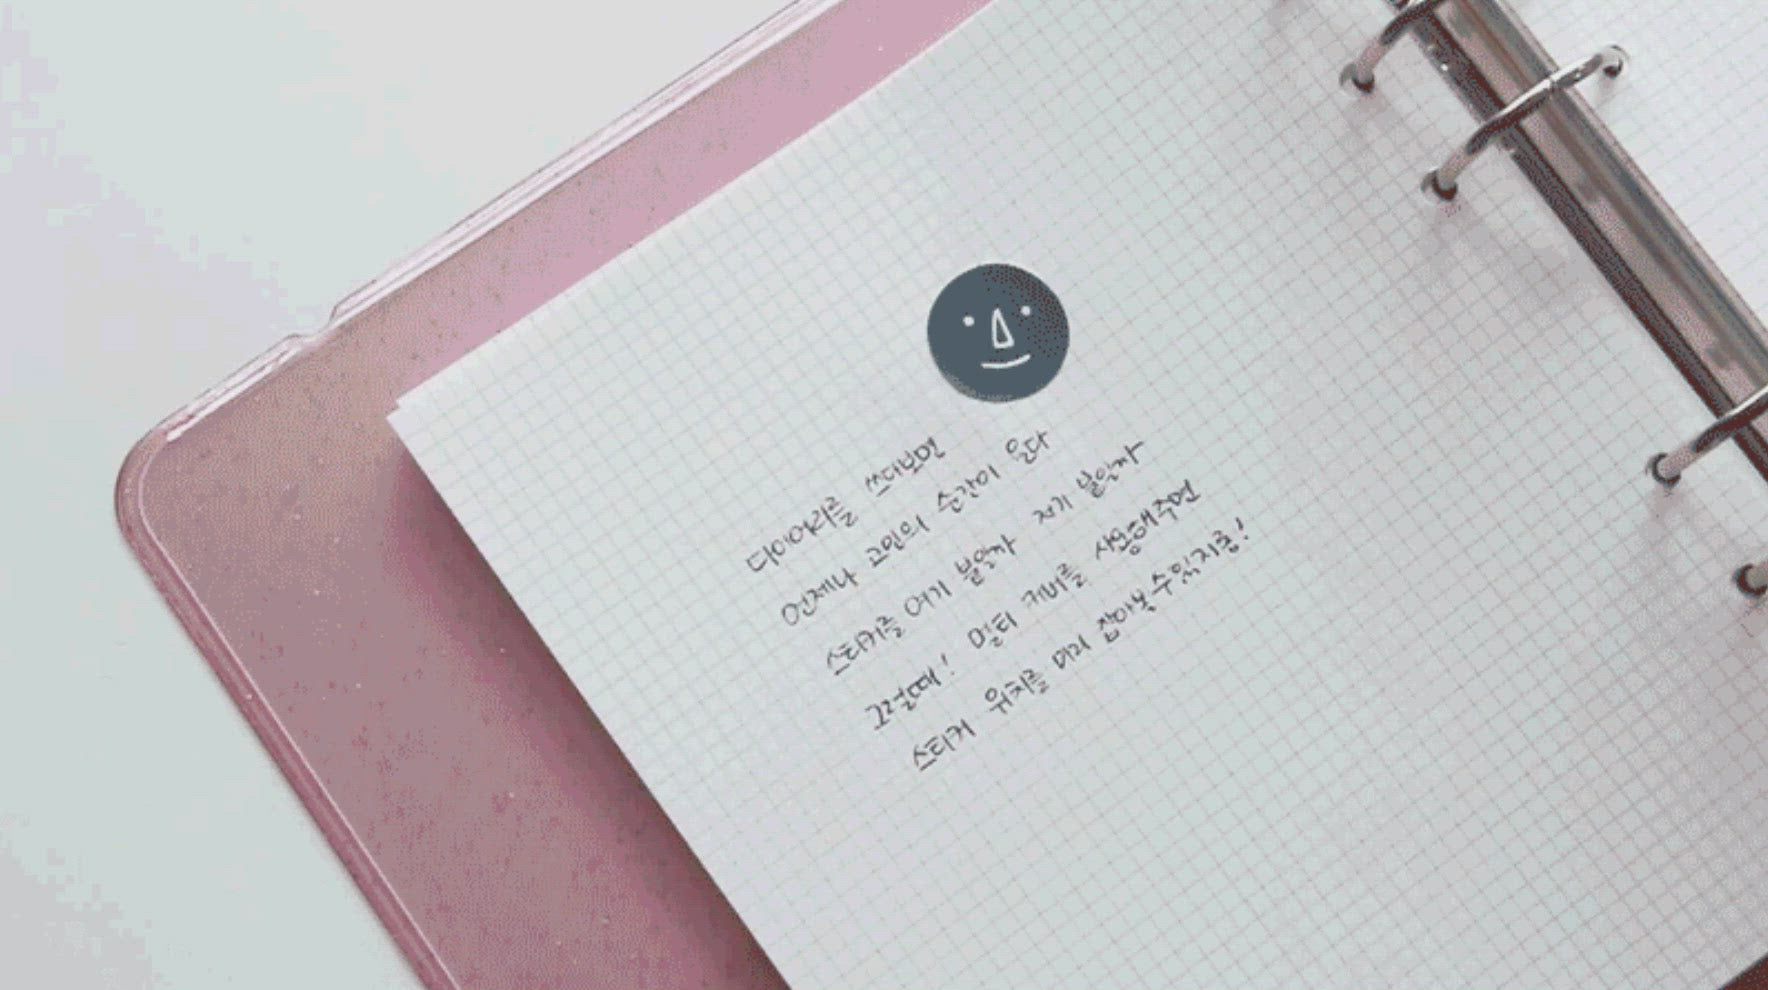 다이어리를 쓰다보면
언제나 고민의 순간이 온다
스티커를 여기 붙일까 저기 붙일까
그럴때! 멀티 커버를 사용해주면
스티커 위치를 미리 잡아볼수있지롱!